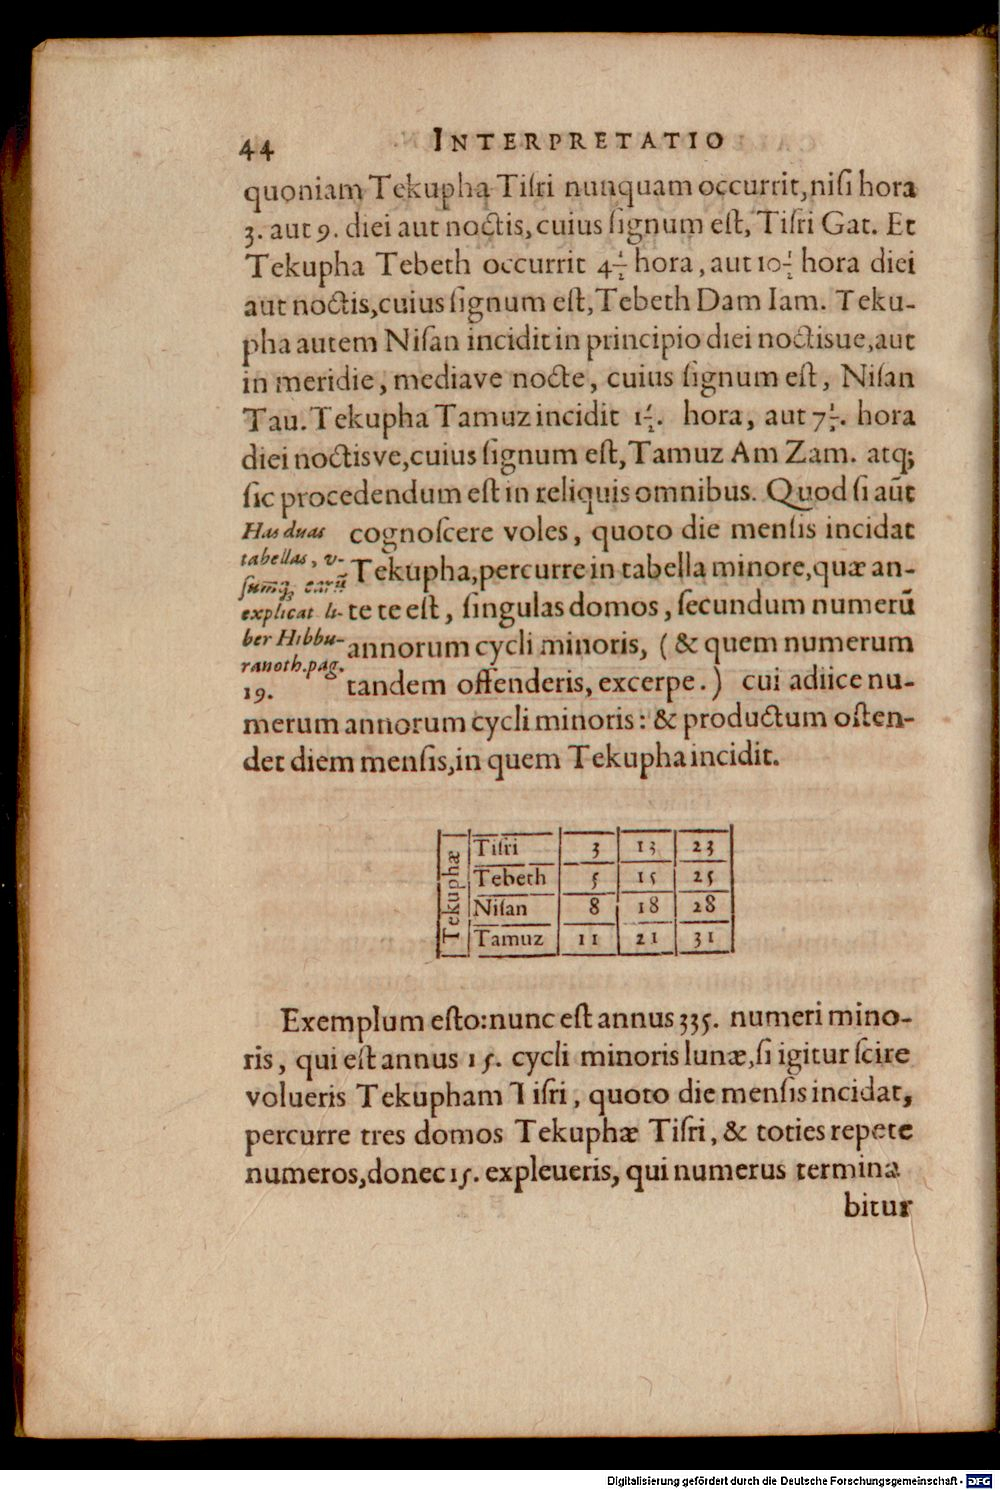 44 INTERPRETATIO
quoniam Tekupha Tiſri nunquam occurrit, niſi hora
3. aut 9. diei aut noctis, cuius ſignum eſt, Tiſri Gat. Et
Tekupha Tebeth occurrit 4½ hora, aut 10½ hora diei
aut noctis, cuius ſignum eſt, Tebeth Dam Iam. Teku-
pha autem Niſan incidit in principio diei noctisue, aut
in meridie, mediave nocte, cuius ſignum eſt, Niſan
Tau. Tekupha Tamuz incidit 1½. hora, aut 7½. hora
diei noctisve, cuius ſignum eſt, Tamuz Am Zam. atq;
ſic procedendum eſt in reliquis omnibus. Quod ſi aūt
cognoſcere voles, quoto die menſis incidat
Tekupha, percurre in tabella minore, quæ an-
te te eſt, ſingulas domos, ſecundum numerū
annorum cycli minoris, (& quem numerum
tandem offenderis, excerpe.) cui adiice nu-
merum annorum cycli minoris: & productum oſten-
det diem menſis, in quem Tekupha incidit.
Has duas
tabellas, v-
ſumq; earū
explicat li-
ber Hibbu-
ranoth. pag.
19.
Tekuphæ
Tiſri 3 13 23
Tebeth 5 15 25
Niſan 8 18 28
Tamuz 11 21 31
Exemplum eſto: nunc eſt annus 335. numeri mino-
ris, qui eſt annus 15. cycli minoris lunæ, ſi igitur ſcire
volueris Tekupham Tiſri, quoto die menſis incidat,
percurre tres domos Tekuphæ Tiſri, & toties repete
numeros, donec 15. expleueris, qui numerus termina
bitur
Digitalisierung gefördert durch die Deutsche Forschungsgemeinschaft - DFG